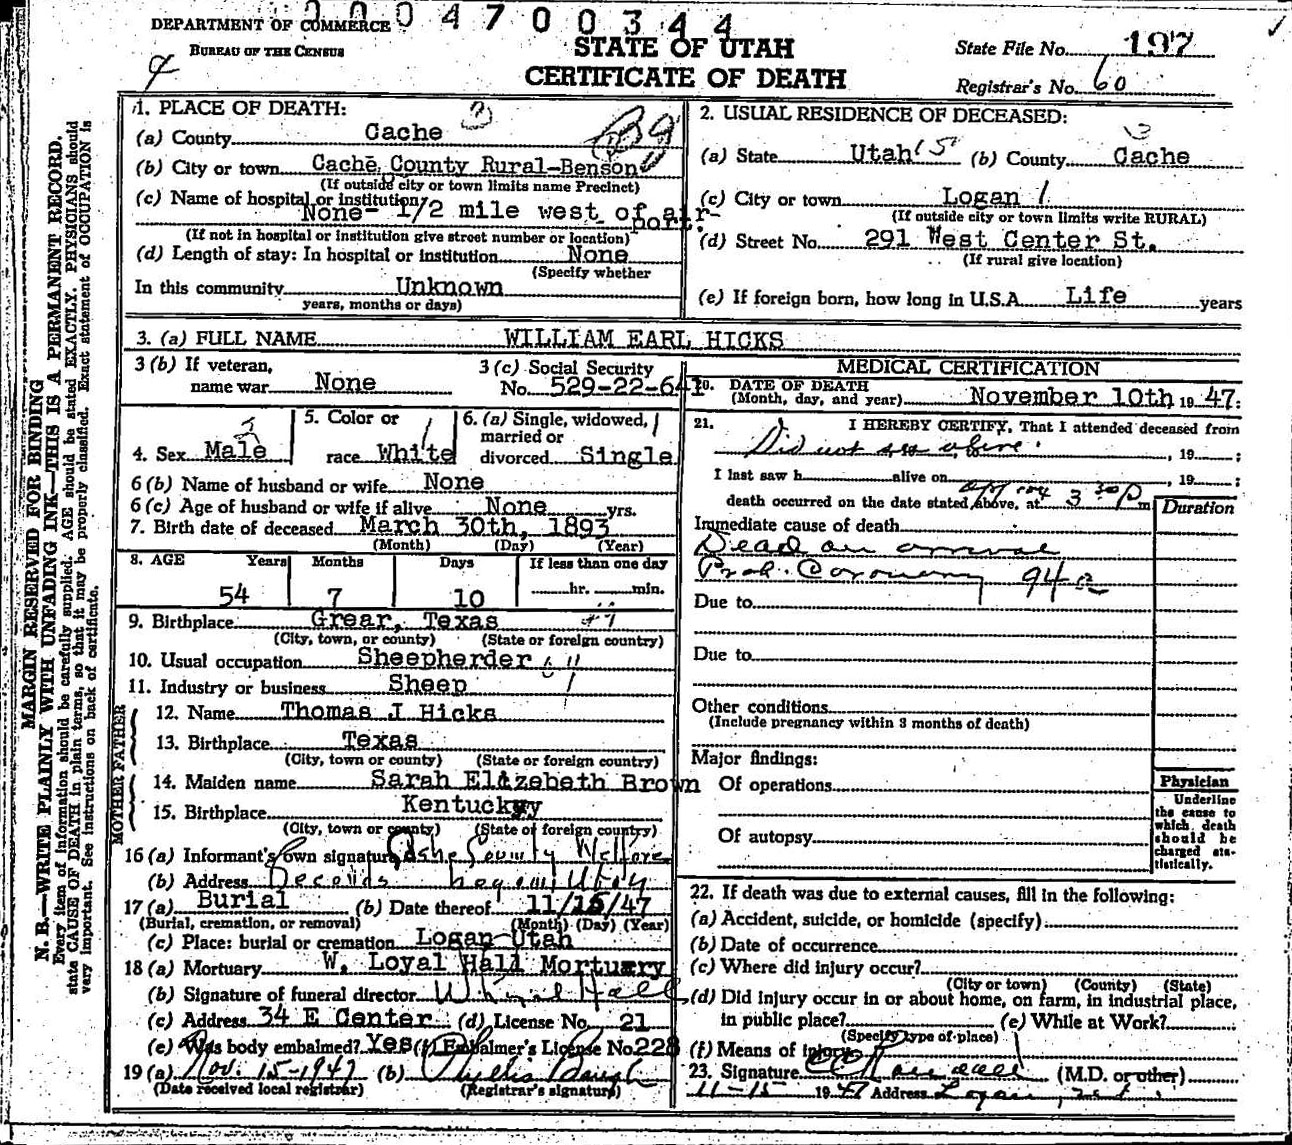 0004700344
DEPARTMENT OF COMMERCE
BUREAU OF THE CENSUS
4
STATE OF UTAH
CERTIFICATE OF DEATH
State File No. 197
Registrar's No. 60
MARGIN RESERVED FOR BINDING
N. B.—WRITE PLAINLY WITH UNFADING INK—THIS IS A PERMANENT RECORD.
Every item of Information should be carefully supplied. AGE should be stated EXACTLY. PHYSICIANS should
state CAUSE OF DEATH in plain terms, so that it may be properly classified. Exact statement of OCCUPATION is
very important. See instructions on back of certificate.
1. PLACE OF DEATH:
(a) County Cache 3
(b) City or town Cache County Rural-Benson
(If outside city or town limits name Precinct)
(c) Name of hospital or institution:
None- 1/2 mile west of air-
port.
(If not in hospital or institution give street number or location)
(d) Length of stay: In hospital or institution None
(Specify whether
In this community Unknown
years, months or days)
2. USUAL RESIDENCE OF DECEASED:
(a) State Utah 15 (b) County Cache 3
(c) City or town Logan 1
(If outside city or town limits write RURAL)
(d) Street No. 291 West Center St.
(If rural give location)
(e) If foreign born, how long in U.S.A. Life years
3. (a) FULL NAME WILLIAM EARL HICKS
3 (b) If veteran,
name war None
3 (c) Social Security
No. 529-22-641
4. Sex Male
5. Color or
race White
6. (a) Single, widowed,
married or
divorced Single
6 (b) Name of husband or wife None
6 (c) Age of husband or wife if alive None yrs.
7. Birth date of deceased March 30th, 1893
(Month) (Day) (Year)
8. AGE Years Months Days If less than one day
54 7 10 hr. min.
9. Birthplace Grear, Texas
(City, town, or county) (State or foreign country)
10. Usual occupation Sheepherder
11. Industry or business Sheep
FATHER
12. Name Thomas J Hicks
13. Birthplace Texas
(City, town or county) (State or foreign country)
MOTHER
14. Maiden name Sarah Elizebeth Brown
15. Birthplace Kentucky
(City, town or county) (State or foreign country)
16 (a) Informant's own signature Cache County Welfare
(b) Address Records Logan, Utah
17 (a) Burial (b) Date thereof 11/15/47
(Burial, cremation, or removal) (Month) (Day) (Year)
(c) Place: burial or cremation Logan Utah
18 (a) Mortuary W. Loyal Hall Mortuary
(b) Signature of funeral director Hall
(c) Address 34 E Center (d) License No. 21
(e) Was body embalmed? Yes (f) Embalmer's License No. 228
19 (a) Nov. 15-1947 (b) Phyllis Baugh
(Date received local registrar) (Registrar's signature)
MEDICAL CERTIFICATION
20. DATE OF DEATH
(Month, day, and year) November 10th 1947:
21. I HEREBY CERTIFY, That I attended deceased from
Did not see alive. , 19 ;
I last saw h alive on , 19 ;
death occurred on the date stated above, at approx 3 30 P m
Duration
Immediate cause of death
Dead on arrival
Prob. Coronary 94
Due to
Due to
Other conditions
(Include pregnancy within 3 months of death)
Major findings:
Of operations
Of autopsy
Physician
Underline
the cause to
which death
should be
charged sta-
tistically.
22. If death was due to external causes, fill in the following:
(a) Accident, suicide, or homicide (specify)
(b) Date of occurrence
(c) Where did injury occur?
(City or town) (County) (State)
(d) Did injury occur in or about home, on farm, in industrial place,
in public place? (e) While at Work?
(Specify type of place)
(f) Means of injury
23. Signature (M.D. or other)
11-15 1947 Address Logan, Ut.